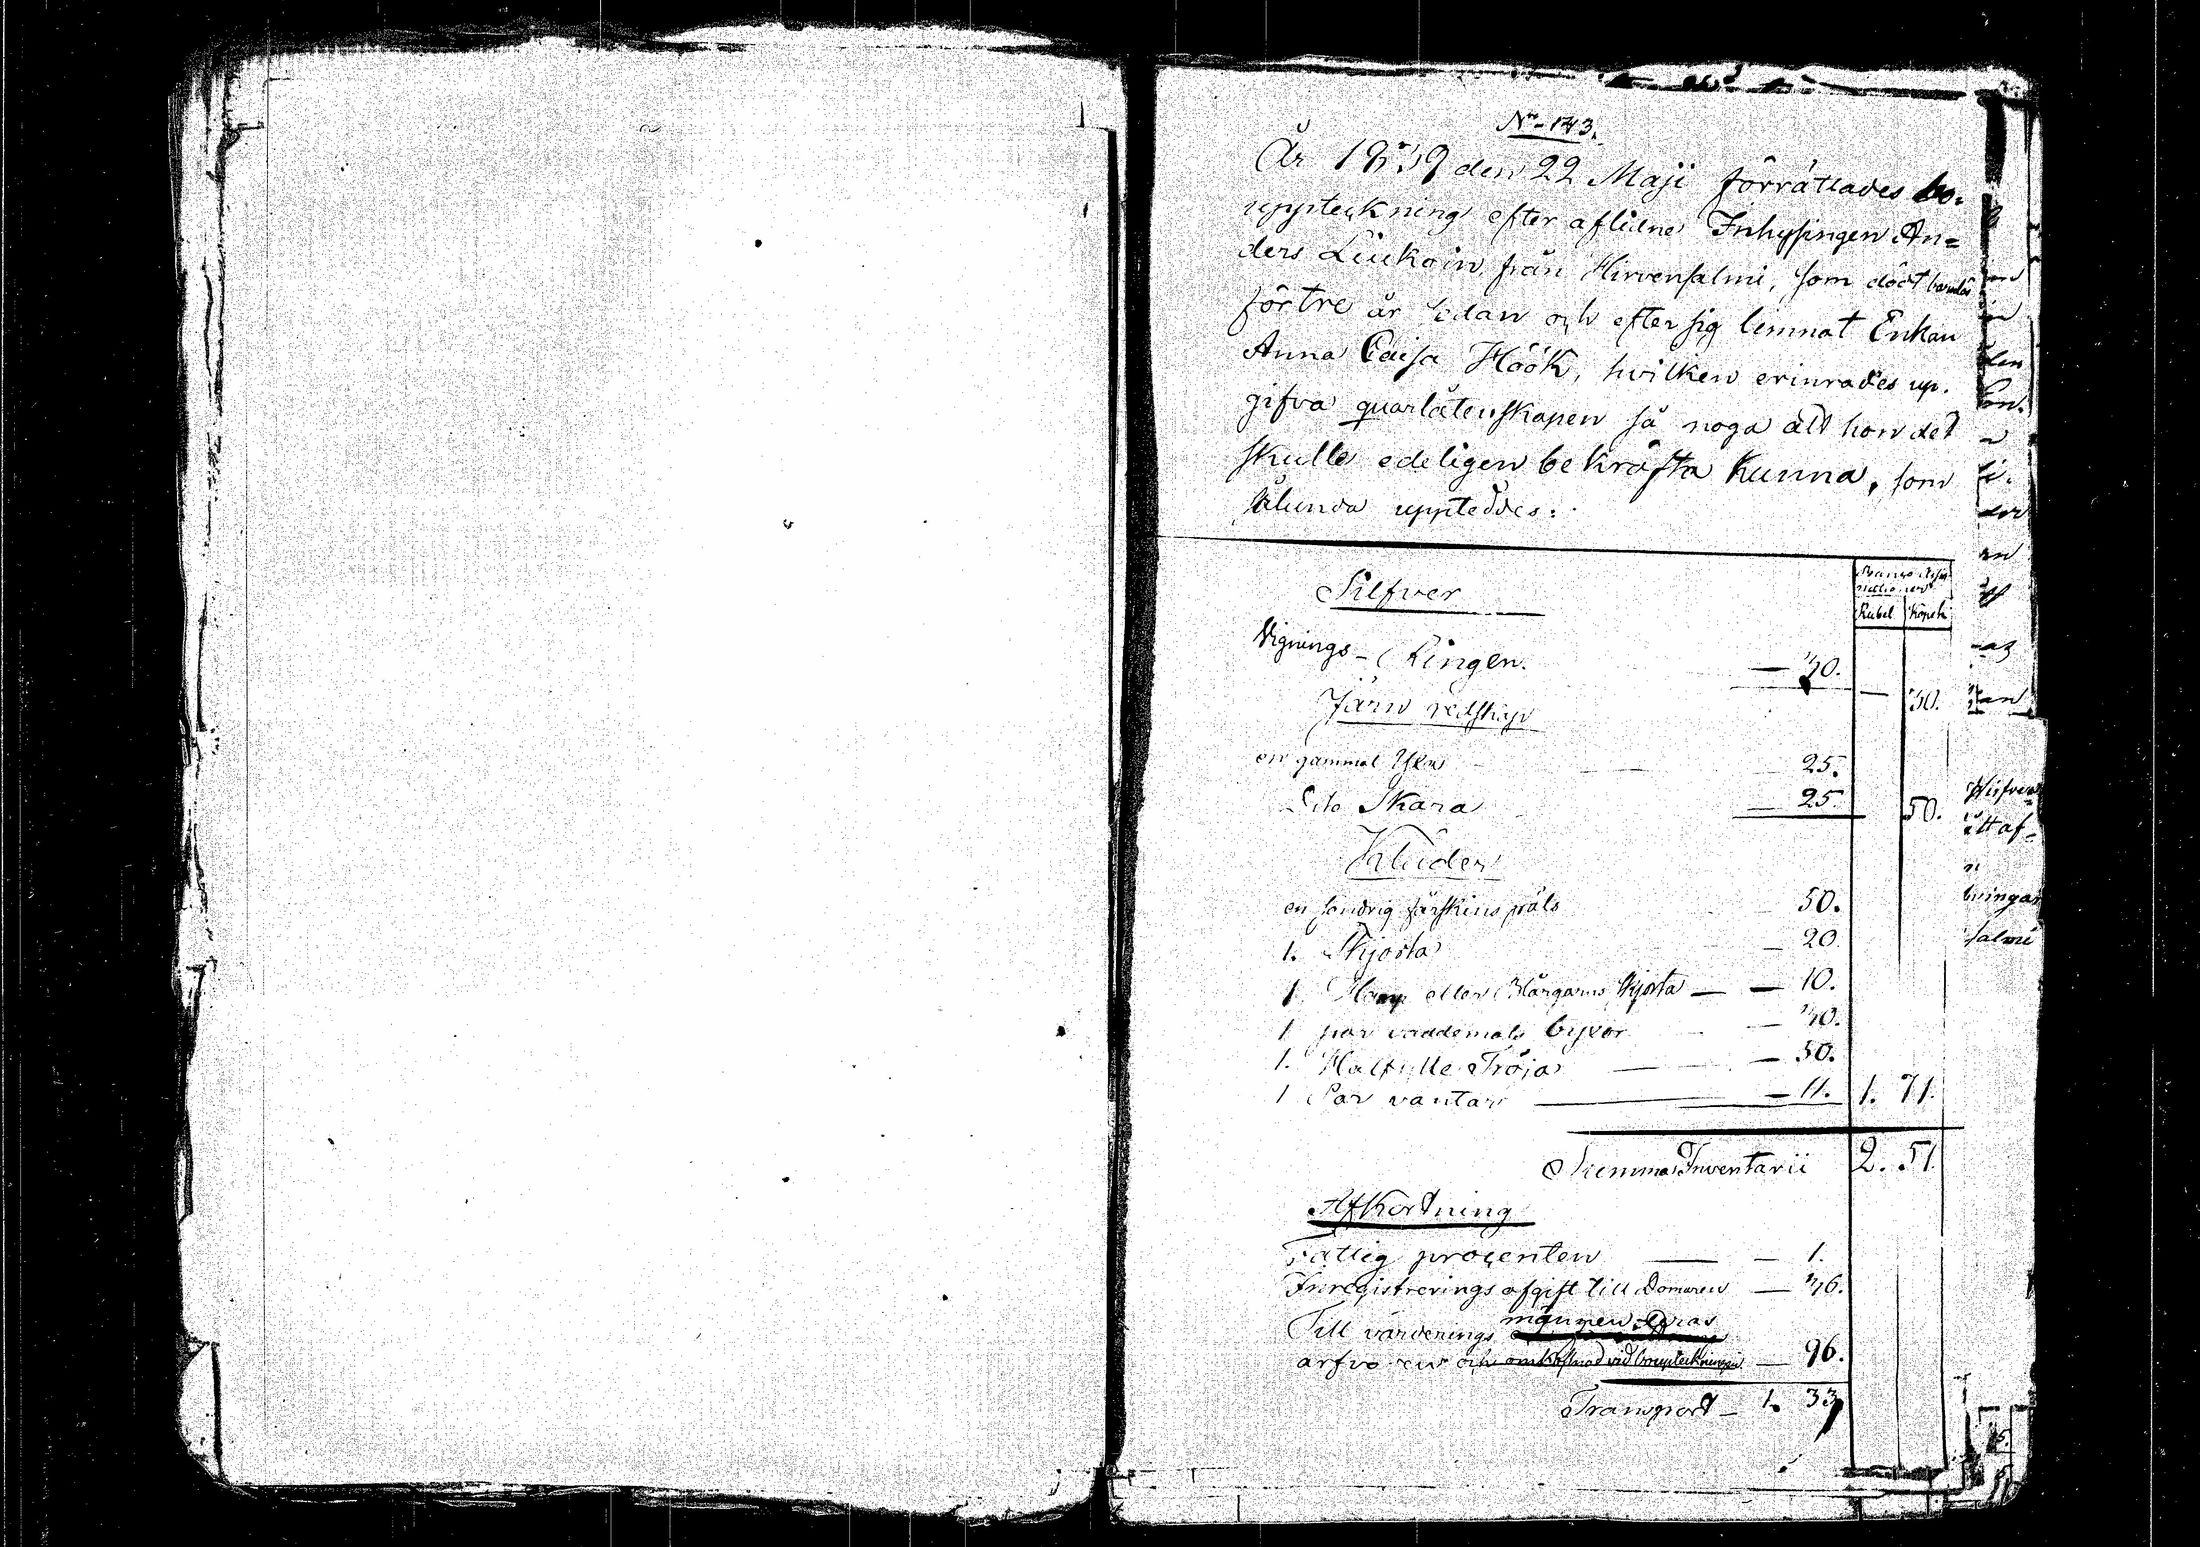 No 143.
År 1839 den 22 Maji förrättades bo-
uppteckning efter aflidne Inhysingen An=
ders Liukoin från Hirvensalmi, som dödt
för tre år sedan och efter sig lemnat Enkan
Anna Caisa Höök, hvilken erinrades up-
gifva quarlåtenskapen så noga att hon det
skulle edeligen bekräfta kunna, som
sålunda uppteddes:
Rubel Kopek
Silfver
Vignings-Ringen. — 30.
— 30.
Järn redskap
en gammal Yxa 25.
Dito Skara — 25. 50.
Kläder
en söndrig fårskins päls 50.
1. Skjorta — 20.
1 Hamp eller Blårgarns skjorta — — 10.
1 par vadmals byxor — 30.
1. Halfylle Tröja — — 50.
1 Par vantar — 11. 1. 71.
Summa Inventarii 2. 51.
Afkortning
Fattig procenten — — 1.
Inregistrerings afgift till Domaren — 36.
Till värderings männen deras
arfvoden och omkostnad vid bouppteckningen — 96.
Transport — 1. 33